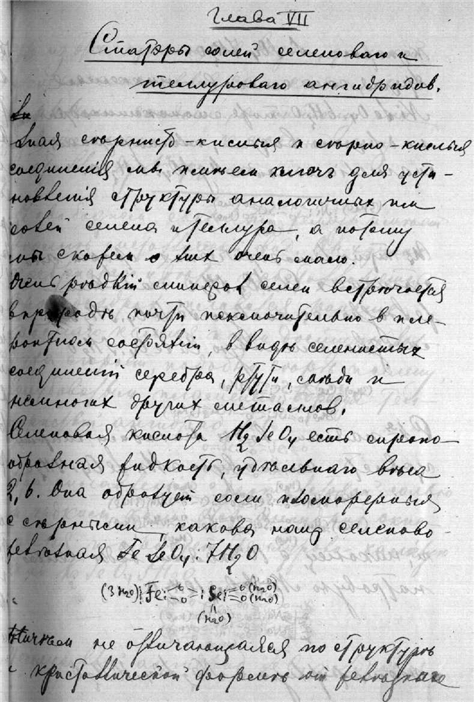 Глава VII
Статры солей селеноваго и
теллуроваго ангидридов.
Зная сѣрнисто-кислыя и сѣрно-кислыя
соединенія мы имѣем ключ для уста-
новленія структуры аналогичных им
солей селена и теллура, а потому
мы скажем о них очень мало.
Очень рѣдкій минерал селен встрѣчается
в природѣ почти исключительно в
состояніи, в видѣ селенистых
соединеній серебра, ртути, мѣди и
немногих других металлов.
Селеновая кислота H2SeO4 есть сиропо-
образная жидкость, удѣльнаго вѣса
2,6. Она образует соли изоморфныя
с сѣрными какова напр селеново-
желѣзная FeSeO4.7H2O
(3H2O) Fe O O Se O(H2O) O(H2O)
(H2O)
ничѣм не отличающаяся по структурѣ
и кристаллической формѣ от желѣзнаго